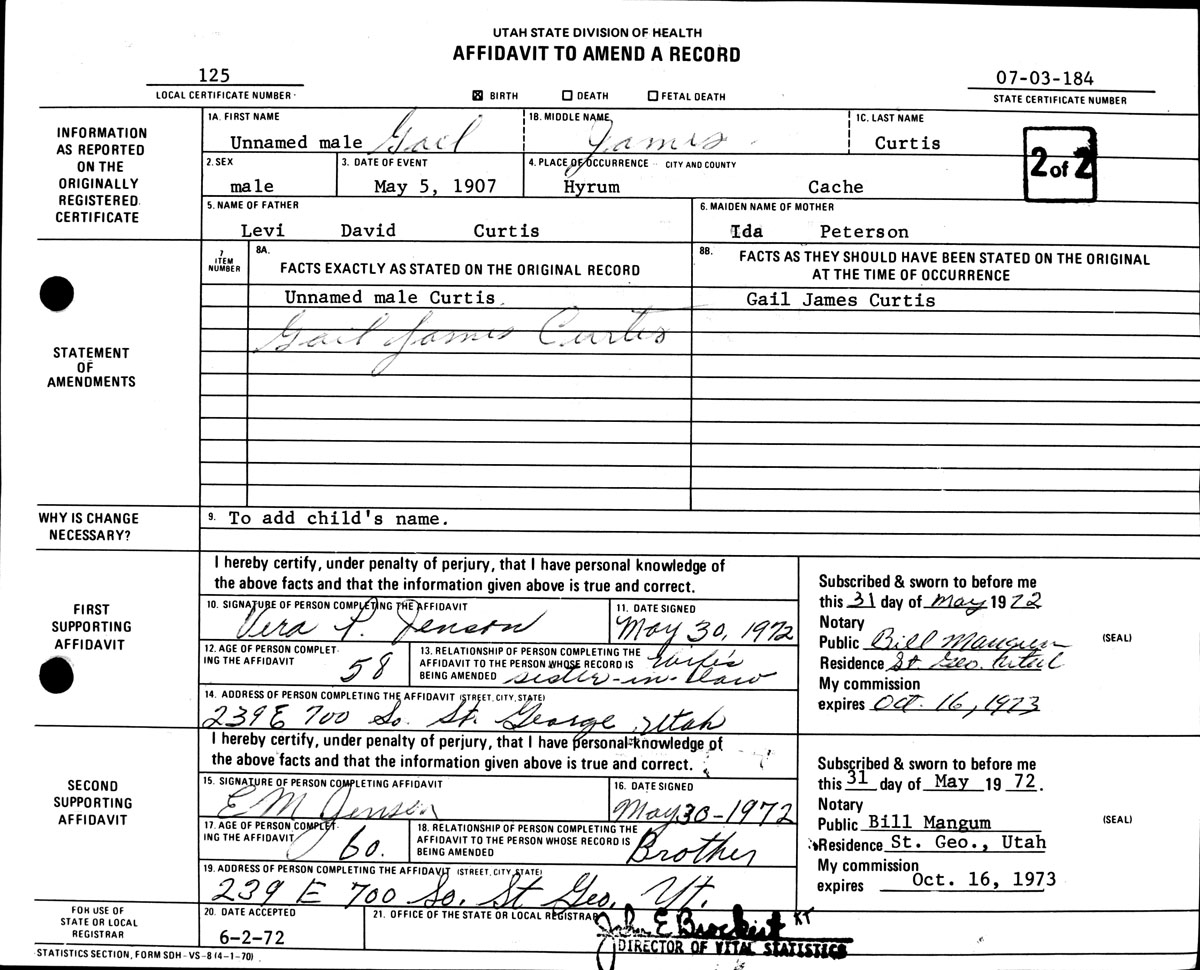 UTAH STATE DIVISION OF HEALTH
AFFIDAVIT TO AMEND A RECORD
125
LOCAL CERTIFICATE NUMBER
☒ BIRTH ☐ DEATH ☐ FETAL DEATH
07-03-184
STATE CERTIFICATE NUMBER
INFORMATION AS REPORTED ON THE ORIGINALLY REGISTERED CERTIFICATE
1A. FIRST NAME 1B. MIDDLE NAME 1C. LAST NAME
Unnamed male Gail James Curtis
2 of 2
2. SEX 3. DATE OF EVENT 4. PLACE OF OCCURRENCE CITY AND COUNTY
male May 5, 1907 Hyrum Cache
5. NAME OF FATHER 6. MAIDEN NAME OF MOTHER
Levi David Curtis Ida Peterson
STATEMENT OF AMENDMENTS
7 ITEM NUMBER
8A. FACTS EXACTLY AS STATED ON THE ORIGINAL RECORD
8B. FACTS AS THEY SHOULD HAVE BEEN STATED ON THE ORIGINAL AT THE TIME OF OCCURRENCE
Unnamed male Curtis. Gail James Curtis
Gail James Curtis
WHY IS CHANGE NECESSARY?
9. To add child's name.
FIRST SUPPORTING AFFIDAVIT
I hereby certify, under penalty of perjury, that I have personal knowledge of
the above facts and that the information given above is true and correct.
10. SIGNATURE OF PERSON COMPLETING THE AFFIDAVIT 11. DATE SIGNED
Vera P. Jenson May 30, 1972
12. AGE OF PERSON COMPLETING THE AFFIDAVIT 58
13. RELATIONSHIP OF PERSON COMPLETING THE AFFIDAVIT TO THE PERSON WHOSE RECORD IS BEING AMENDED wife's sister-in-law
14. ADDRESS OF PERSON COMPLETING THE AFFIDAVIT (STREET, CITY, STATE)
239 E 700 So. St. George, Utah
Subscribed & sworn to before me
this 31 day of May 1972
Notary
Public Bill Mangum (SEAL)
Residence St Geo. Utah
My commission
expires Oct. 16, 1973
SECOND SUPPORTING AFFIDAVIT
I hereby certify, under penalty of perjury, that I have personal knowledge of
the above facts and that the information given above is true and correct.
15. SIGNATURE OF PERSON COMPLETING AFFIDAVIT 16. DATE SIGNED
E M Jenson May 30-1972
17. AGE OF PERSON COMPLET-ING THE AFFIDAVIT 60.
18. RELATIONSHIP OF PERSON COMPLETING THE AFFIDAVIT TO THE PERSON WHOSE RECORD IS BEING AMENDED Brother
19. ADDRESS OF PERSON COMPLETING THE AFFIDAVIT (STREET, CITY, STATE)
239 E 700 So. St Geo, Ut.
Subscribed & sworn to before me
this 31 day of May 19 72.
Notary
Public Bill Mangum (SEAL)
Residence St. Geo., Utah
My commission
expires Oct. 16, 1973
FOR USE OF STATE OR LOCAL REGISTRAR
20. DATE ACCEPTED 21. OFFICE OF THE STATE OR LOCAL REGISTRAR
6-2-72 John E Brockert KT
DIRECTOR OF VITAL STATISTICS
STATISTICS SECTION, FORM SDH-VS-8 (4-1-70)